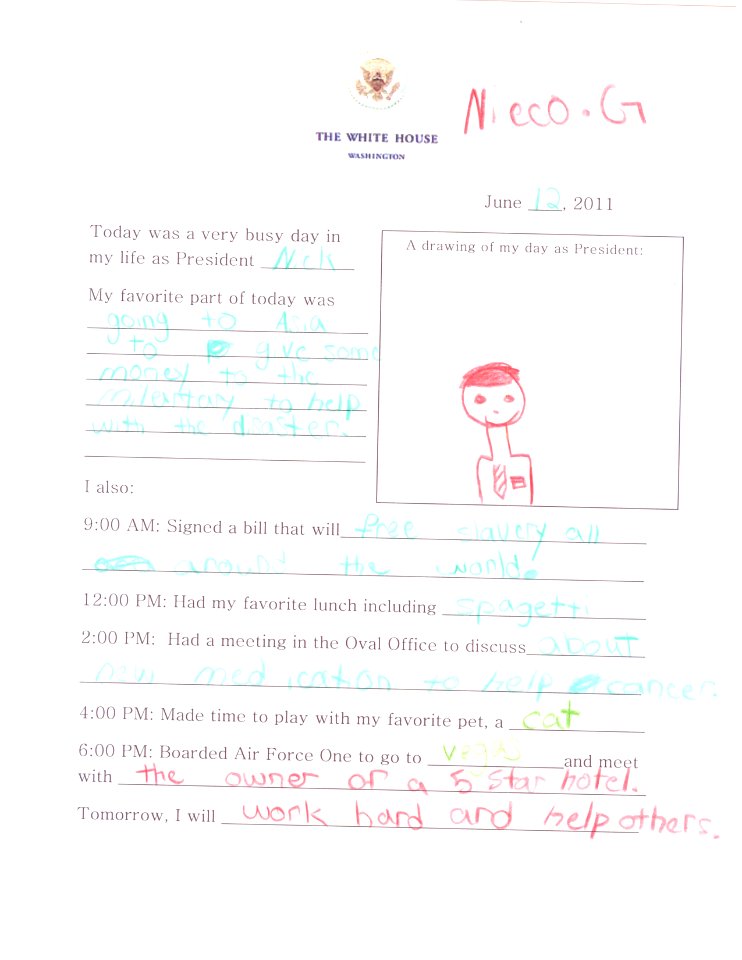 Nicco.G
THE WHITE HOUSE
WASHINGTON
June 12, 2011
Today was a very busy day in
my life as President Nick
My favorite part of today was
going to Asia
to give some
money to the
milertary to help
with the disaster.
A drawing of my day as President:
I also:
9:00 AM: Signed a bill that will free slavery all
around the world.
12:00 PM: Had my favorite lunch including spagetti
2:00 PM: Had a meeting in the Oval Office to discuss about
new medication to help cancer.
4:00 PM: Made time to play with my favorite pet, a cat
6:00 PM: Boarded Air Force One to go to Vegas and meet
with the owner of a 5 star hotel.
Tomorrow, I will work hard and help others.